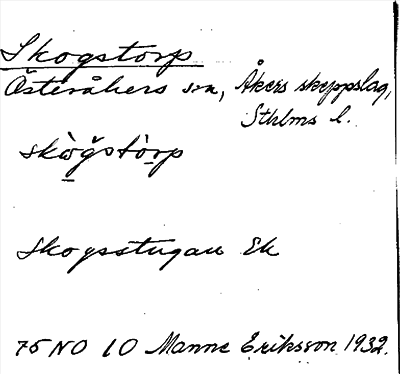 Skogstorp
Österåkers sn, Åkers skeppslag,
Sthlms l.
skògstòrp
Skogsstugan Ek
75 NO 10 Manne Eriksson 1932.